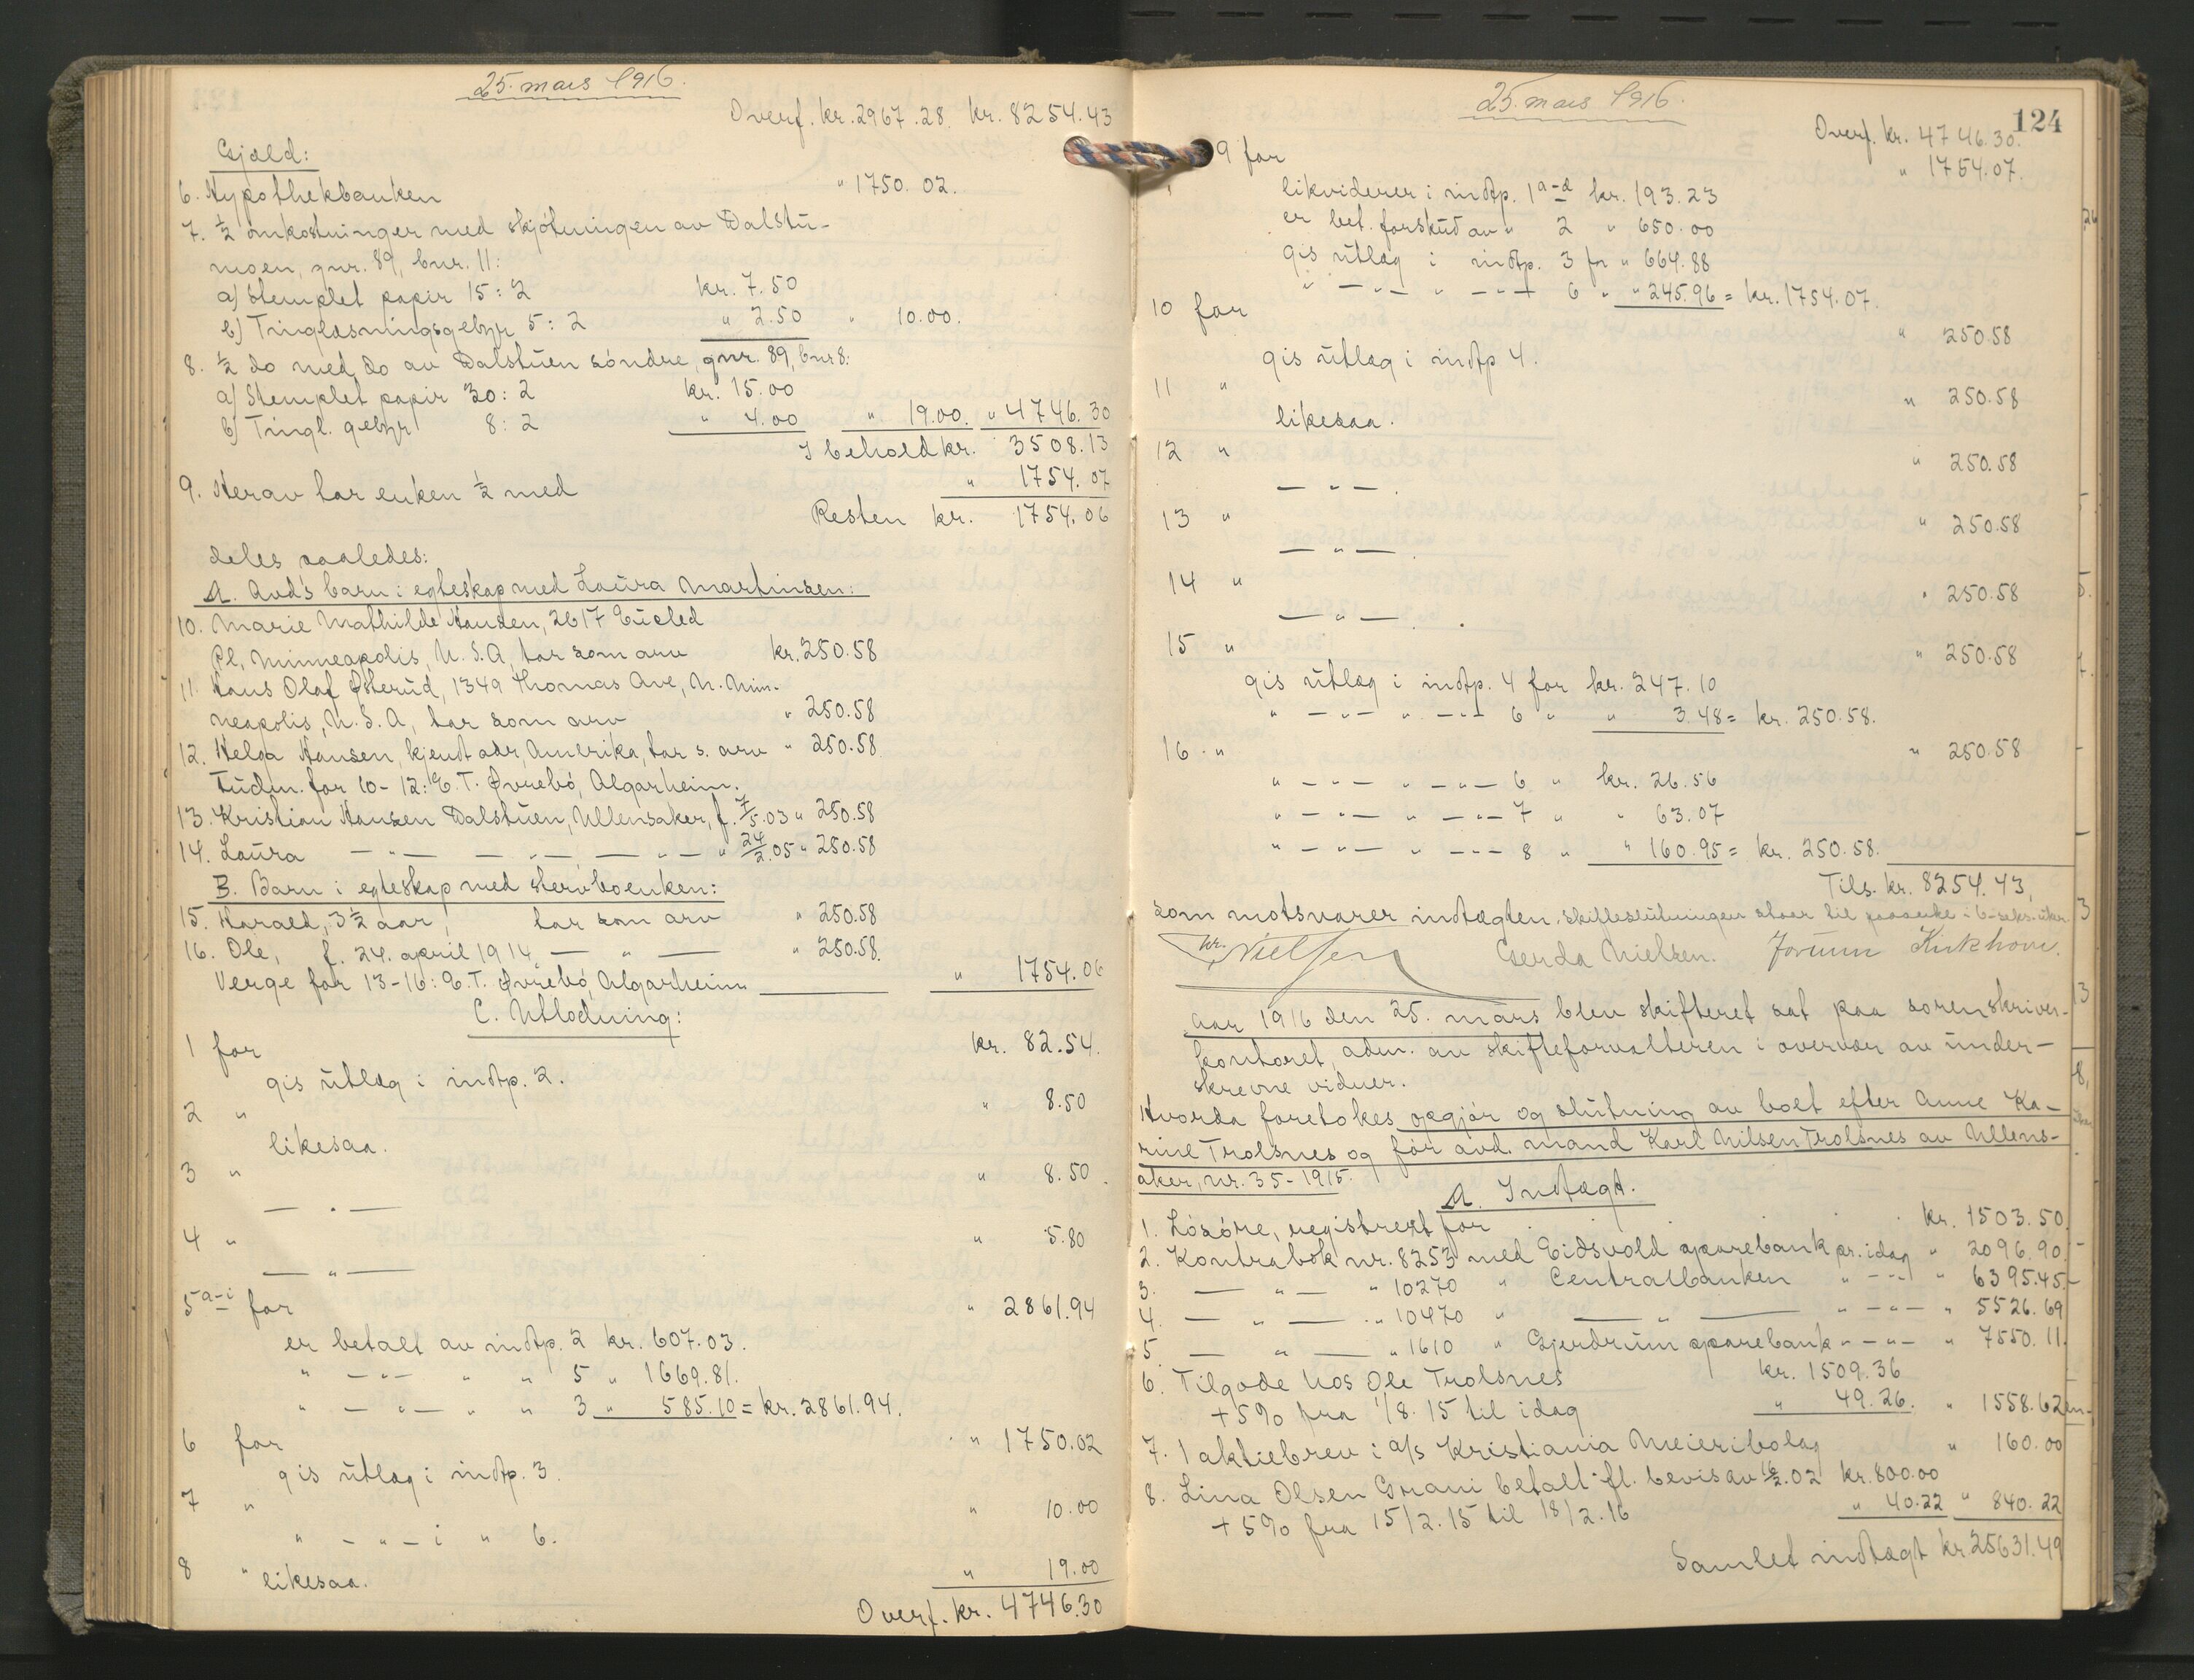 25. mars 1916.
Overf. kr. 2967.28. kr. 8254.43
Gjæld:
6. Hypothekbanken " 1750.02.
7. ½ omkostninger med skjøtningen av Dalstu-
moen, gnr. 89, bnr. 11:
a) Stemplet papir 15:2 kr. 7.50
b) Tinglæsningsgebyr 5:2 " 2.50 " 10.00.
8. ½ do med do av Dalstuen søndre, gnr. 89, bnr 8:
a) Stemplet papir 30:2 kr. 15.00
b) Tingl. gebyr 8:2 " 4.00 " 19.00. " 4746.30
I behold kr. 3508.13
9. Herav har enken ½ med " 1754.07
Resten kr. 1754.06
deles saaledes:
A. Avd's barn i egteskap med Laura Martinsen:
10. Marie Mathilde Hansen, 2617 
Pl, Minneapolis, U.S.A, har som arv kr. 250.58
11. Hans Olaf Østerud, 1349 Thomas Ave, N. Min-
neapolis, U.S.A, har som arv " 250.58
12. Helga Hansen, kjendt adr, Amerika, har s. arv " 250.58
Fuldm. for 10-12: E.T. Øvrebø, Algarheim.
13. Kristian Hansen Dalstuen, Ullensaker, f. 7/5.03 " 250.58
14. Laura — " — — " — — " — " 24/2.05 " 250.58
B. Barn i egteskap med stervboenken:
15. Harald, 3½ aar, har som arv " 250.58
16. Ole, f. 24. april 1914, — " — " 250.58.
Verge for 13-16: E.T. Øvrebø, Algarheim " 1754.06
C. Utlodning:
1 for kr. 82.54.
gis utlæg i indtp. 2.
2 " " 8.50
likesaa.
3 " " 8.50.
— " —
4 " " 5.80
— " —
5 a-i for " 2861.94
er betalt av indtp. 2 kr. 607.03.
" — " — " " 5 " 1669.81.
" — " — " " 3 " 585.10 = kr. 2861.94.
6 for " 1750.02
gis utlæg i indtp. 3.
7 " " 10.00
" — " — i " 6.
8 " " 19.00
likesaa.
Overf. kr. 4746.30
25. mars 1916.
124
Overf. kr. 4746.30.
9 for " 1754.07.
likviderer i indtp. 1 a-d kr. 193.23
er bet. forskud av " 2 " 650.00
gis utlæg i indtp. 3 for " 664.88
" — " — " — " — 6 " " 245.96 = kr. 1754.07.
10 for " 250.58
gis utlæg i indtp 4.
11 " " 250.58
likesaa.
12 " " 250.58
— " —.
13 " " 250.58
— " —.
14 " " 250.58
— " —.
15 " " 250.58
gis utlæg i indtp. 4 for kr. 247.10
" — " — " — " — 6 " " 3.48 = kr. 250.58.
16 " " 250.58
" — " — " — " — 6 " kr. 26.56
" — " — " — " — 7 " " 63.07
" — " — " — " — 8 " " 160.95 = kr. 250.58.
Tils. kr. 8254.43,
som motsvarer indtægten. Skifteslutningen staar til paaanke i 6 - seks - uker.
Nielsen Gerda Nielsen. Jorunn Kirkhorn.
Aar 1916 den 25. mars blev skifteret sat paa sorenskriver-
kontoret, adm. av skifteforvalteren i overvær av under-
skrevne vidner.
Hvorda foretokes opgjør og slutning av boet efter Anne Ka-
rine Trolsnes og før avd. mand Karl Nilsen Trolsnes av Ullens-
aker, nr. 35-1915.
A. Indtægt.
1. Løsøre, registrert for kr. 1503.50
2. Kontrabok nr. 8253 med Eidsvold sparebank pr. idag " 2096.90
3. — " — " 10270 " Centralbanken " — " — " 6395.45
4. — " — " 10470 " — " — " — " — " 5526.69
5. — " — " 1610 " Gjerdrum sparebank " — " — " 7550.11.
6. Tilgode hos Ole Trolsnes kr. 1509.36
+ 5% fra 1/8.15 til idag " 49.26. " 1558.62
7. 1 aktiebrev i a/s Kristiania Meieribolag " 160.00
8. Lina Olsen Grani betalt fl. bevis av 18/2.02 kr. 800.00
+ 5% fra 15/2.15 til 18/2.16 " 40.22 " 840.22
Samlet indtægt kr. 25631.49